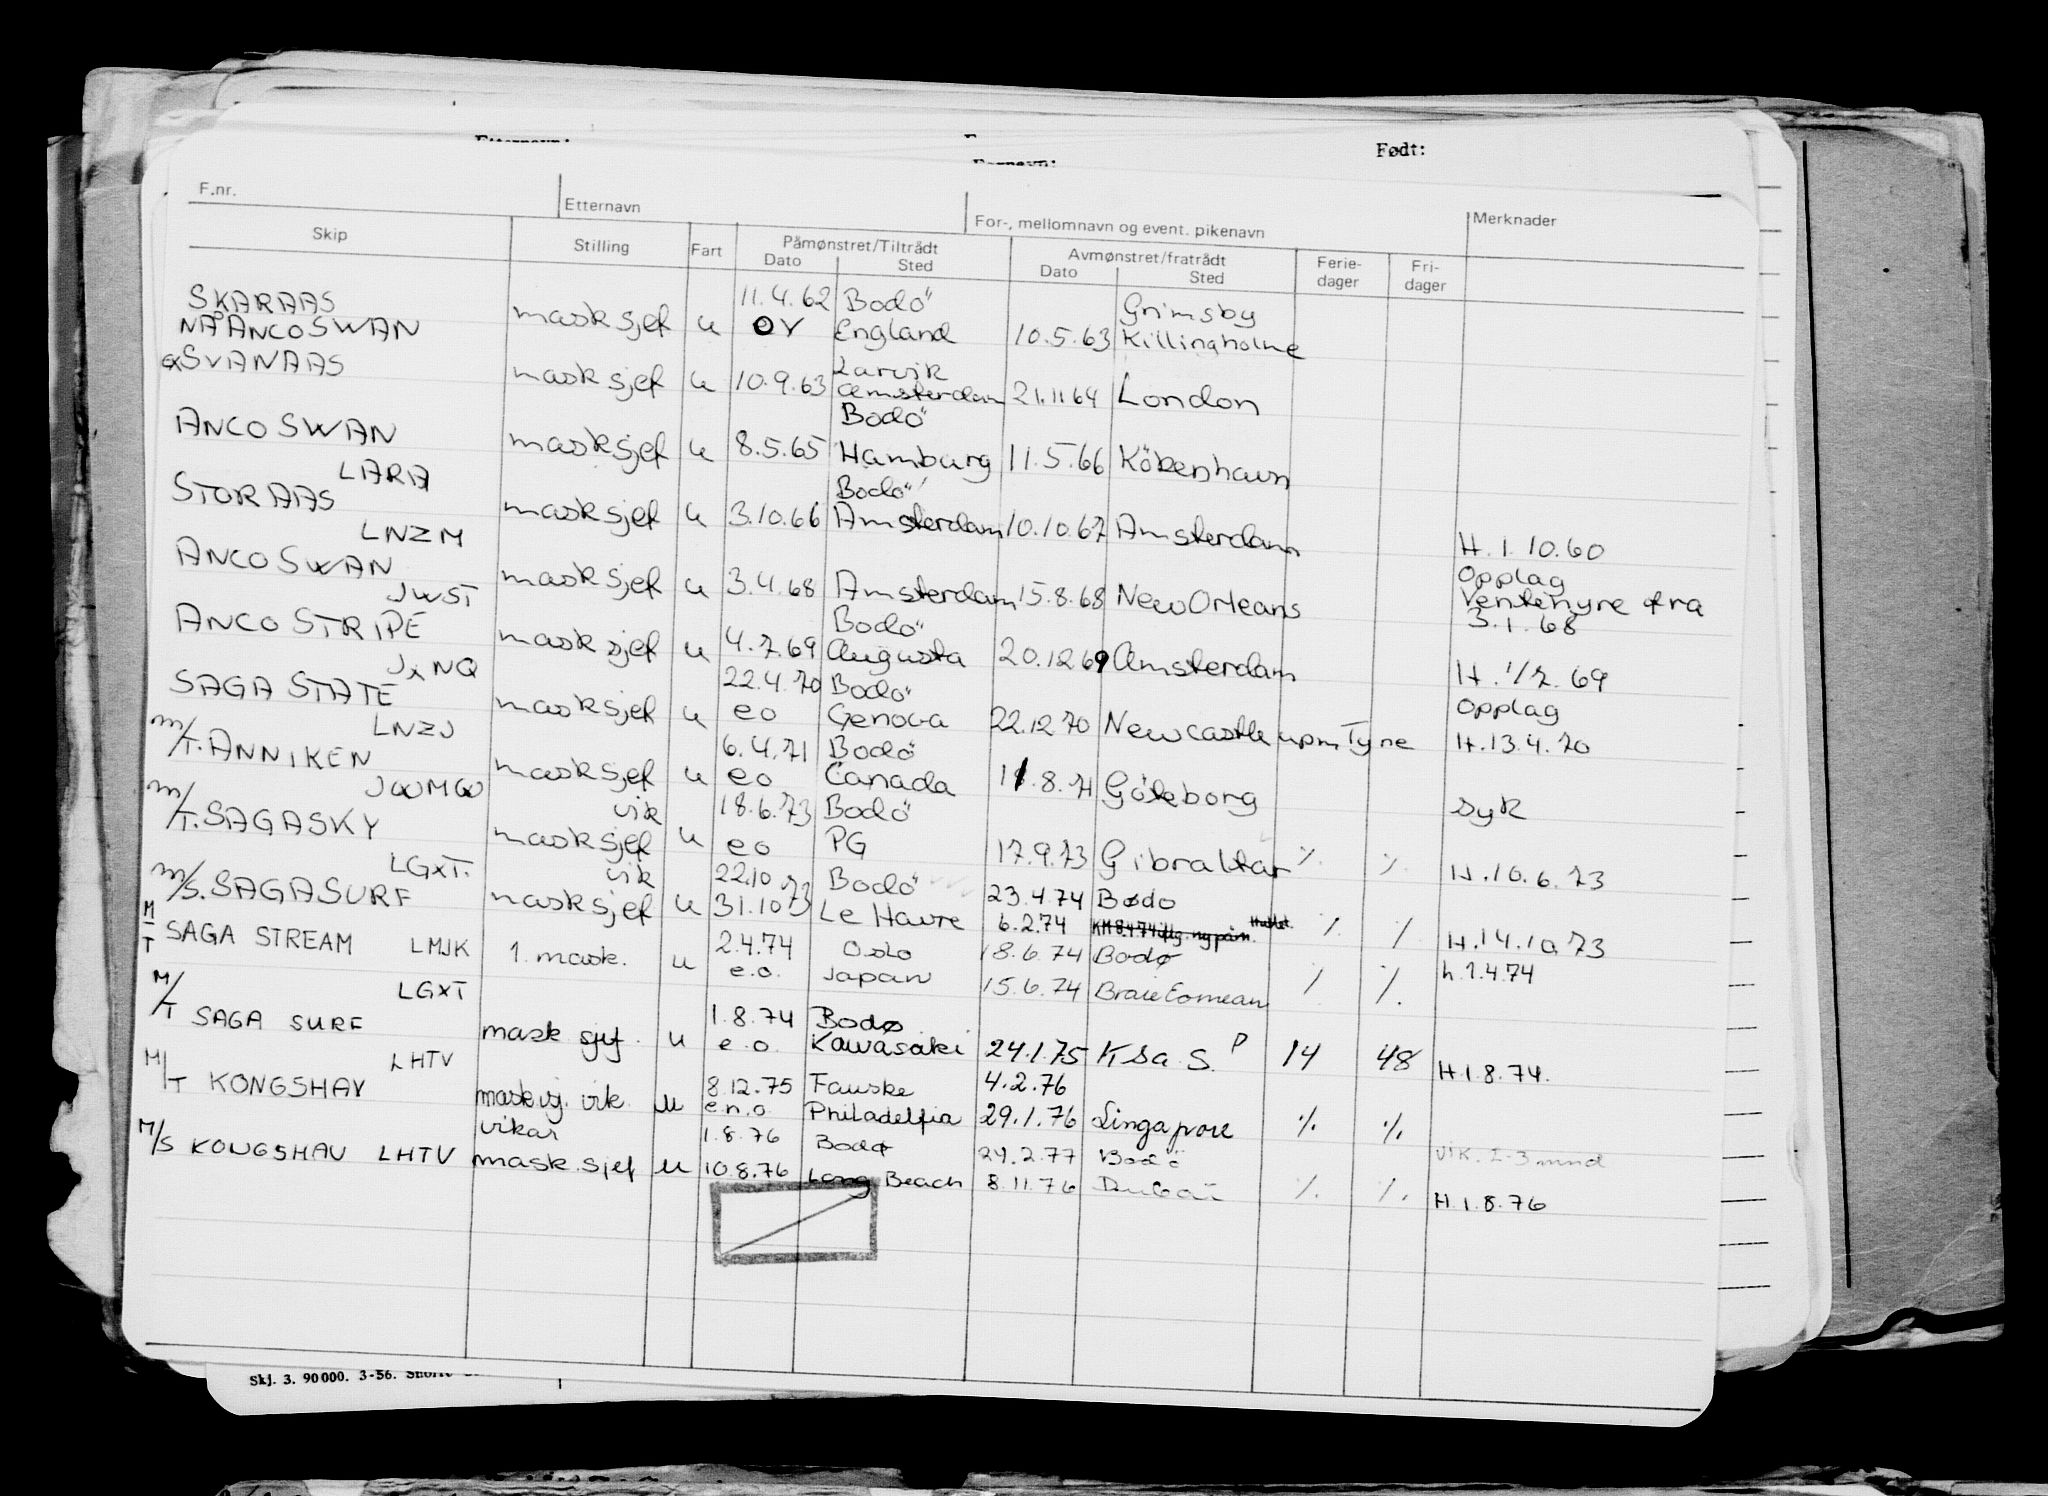 Født:
F.nr. Etternavn For-, mellomnavn og event. pikenavn Merknader
Skip Stilling Fart Påmønstret/Tiltrådt Avmønstret/fratrådt Ferie- Fri-
Dato Sted Dato Sted dager dager
SKARAAS 11.4.62 Bodö Grimsby
NÅ ANCO SWAN mask sjef u OV England 10.5.63 Killingholme
ex SVANAAS Larvik
mask sjef u 10.9.63 Amsterdam 21.11 64 London
Bodö
ANCO SWAN mask sjef u 8.5.65 Hamburg 11.5.66 Kökenhavn
LARA Bodö
STORAAS mask sjef u 3.10.66 Amsterdam 10.10.67 Amsterdam H. 1.10.60
LNZM Opplag
ANCO SWAN mask sjef u 3.4.68 Amsterdam 15.8.68 New Orleans Ventehyre fra
JWST Bodö 3.1.68
ANCO STRIPE mask sjef u 4.7.69 Augusta 20.12 69 Amsterdam H. 1/7. 69
JXNQ 22.4.70 Bodö Opplag
SAGA STATE mask sjef u eo Genova 22.12.70 Newcastle upon Tyne H.13.4.70
LNZJ 6.4.71 Bodö
m/T. ANNIKEN mask sjef u eo Canada 11.8.71 Göteborg syk
JWMW vik 18.6.73 Bodö
m/T. SAGASKY mask sjef u eo PG 17.9.73 Gibraltar % % H.10.6.73
LGXT. vik 22.10 73 Bodö 23.4.74 Bødo
m/S. SAGASURF mask sjef u 31.10 73 Le Havre 6.2.74 % % H.14.10.73
M/T SAGA STREAM LMJK 1. mask. u 2.4.74 Oslo 18.6.74 Bodø h.1.4.74
e.o. Japan 15.6.74 % %
LGXT 1.8.74 Bodø
M/T SAGA SURF mask sjef. u e.o. Kawasaki 24.1.75 KSa S. P 14 48 H.1.8.74.
LHTV 8.12.75 Fauske 4.2.76
M/T KONGSHAV masksj. vik. u e.n.o Philadelfia 29.1.76 Singapore % %
vikar 1.8.76 Bodø 24.2.77 Bodö vik. 2-3 mnd
M/S KONGSHAV LHTV mask. sjef u 10.8.76 Long Beach 8.11.76 Dubai % % H.1.8.76
Skj. 3. 90 000. 3-56.